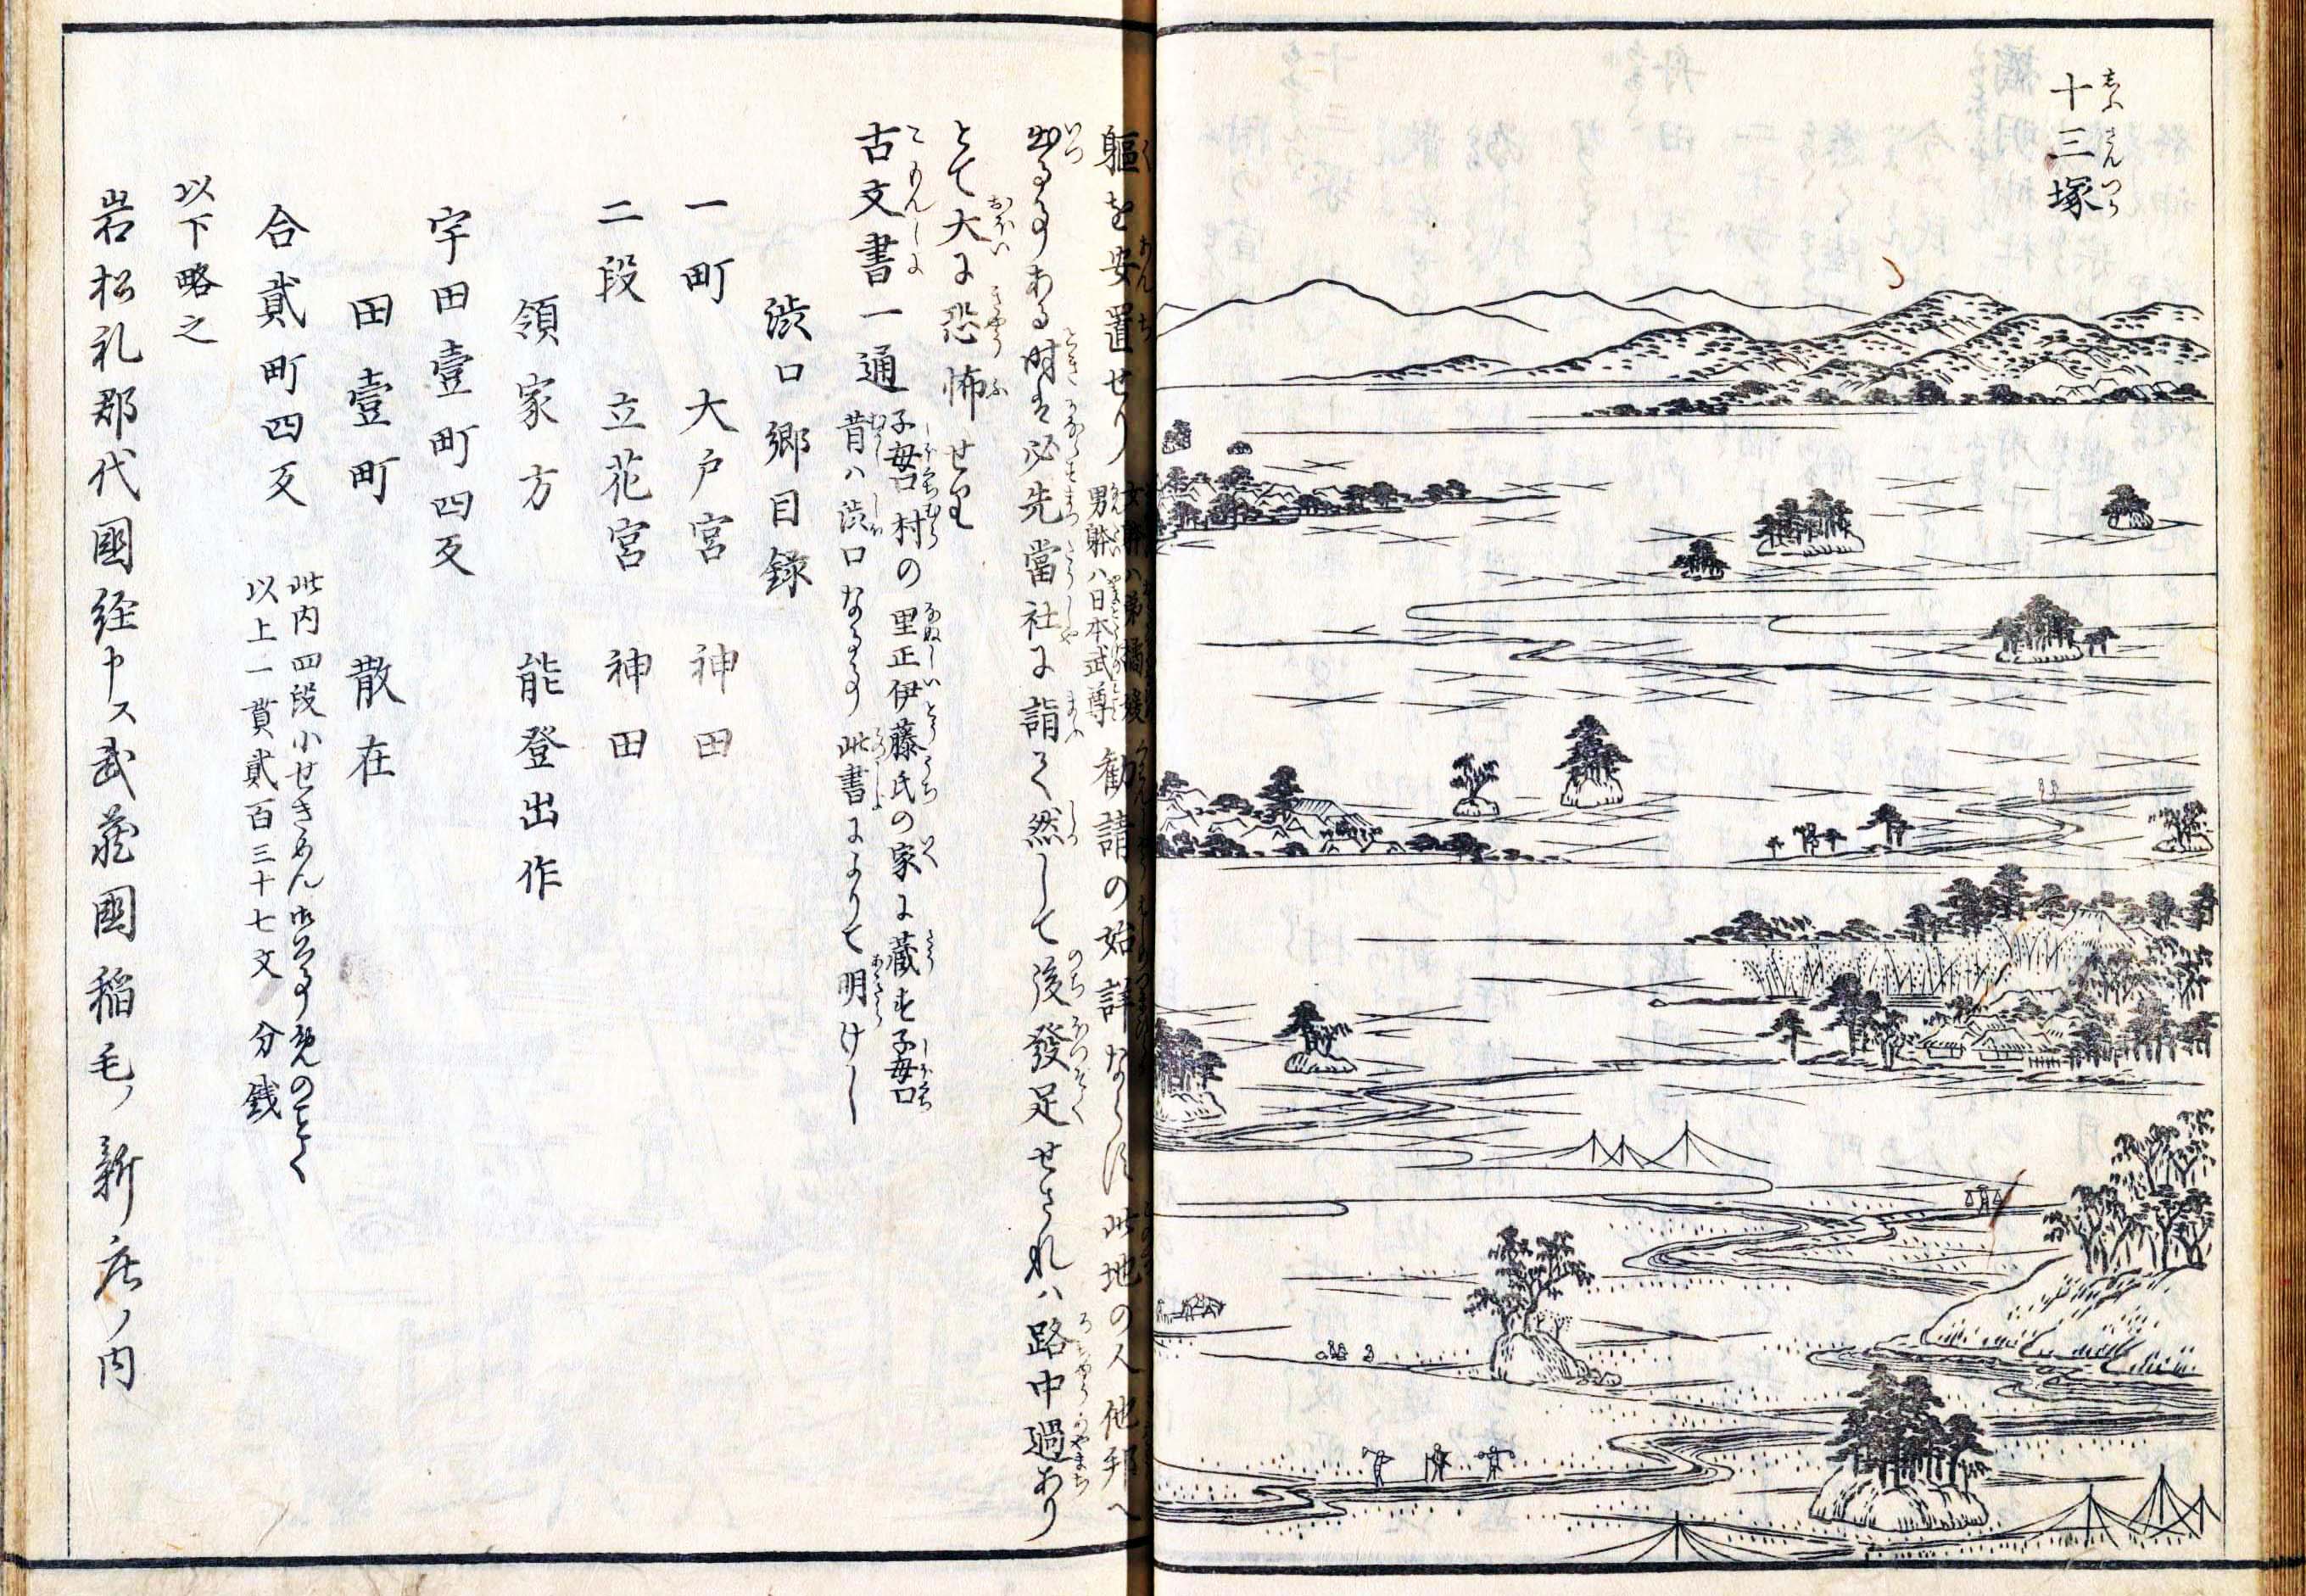 十三塚
躯を安置せり 女躰ハ弟橘媛 男躰ハ日本武尊 勧請の始詳ならす此地の人他邦へ
出る事ある時は必先當社に詣て然して後發足せされハ路中過あり
とて大に恐怖せり
古文書一通 子母口村の里正伊藤氏の家に蔵す子母口
昔ハ渋口なる事此書によりて明けし
渋口郷目録
一町 大戸宮 神田
二段 立花宮 神田
領家方 能登出作
宇田壹町四反
田壹町 散在
合貳町四反 此内四段小せきめん
以上一貫貳百三十七文 分銭
以下略之
岩松礼部代國経申ス武蔵國稲毛ノ新庄ノ内